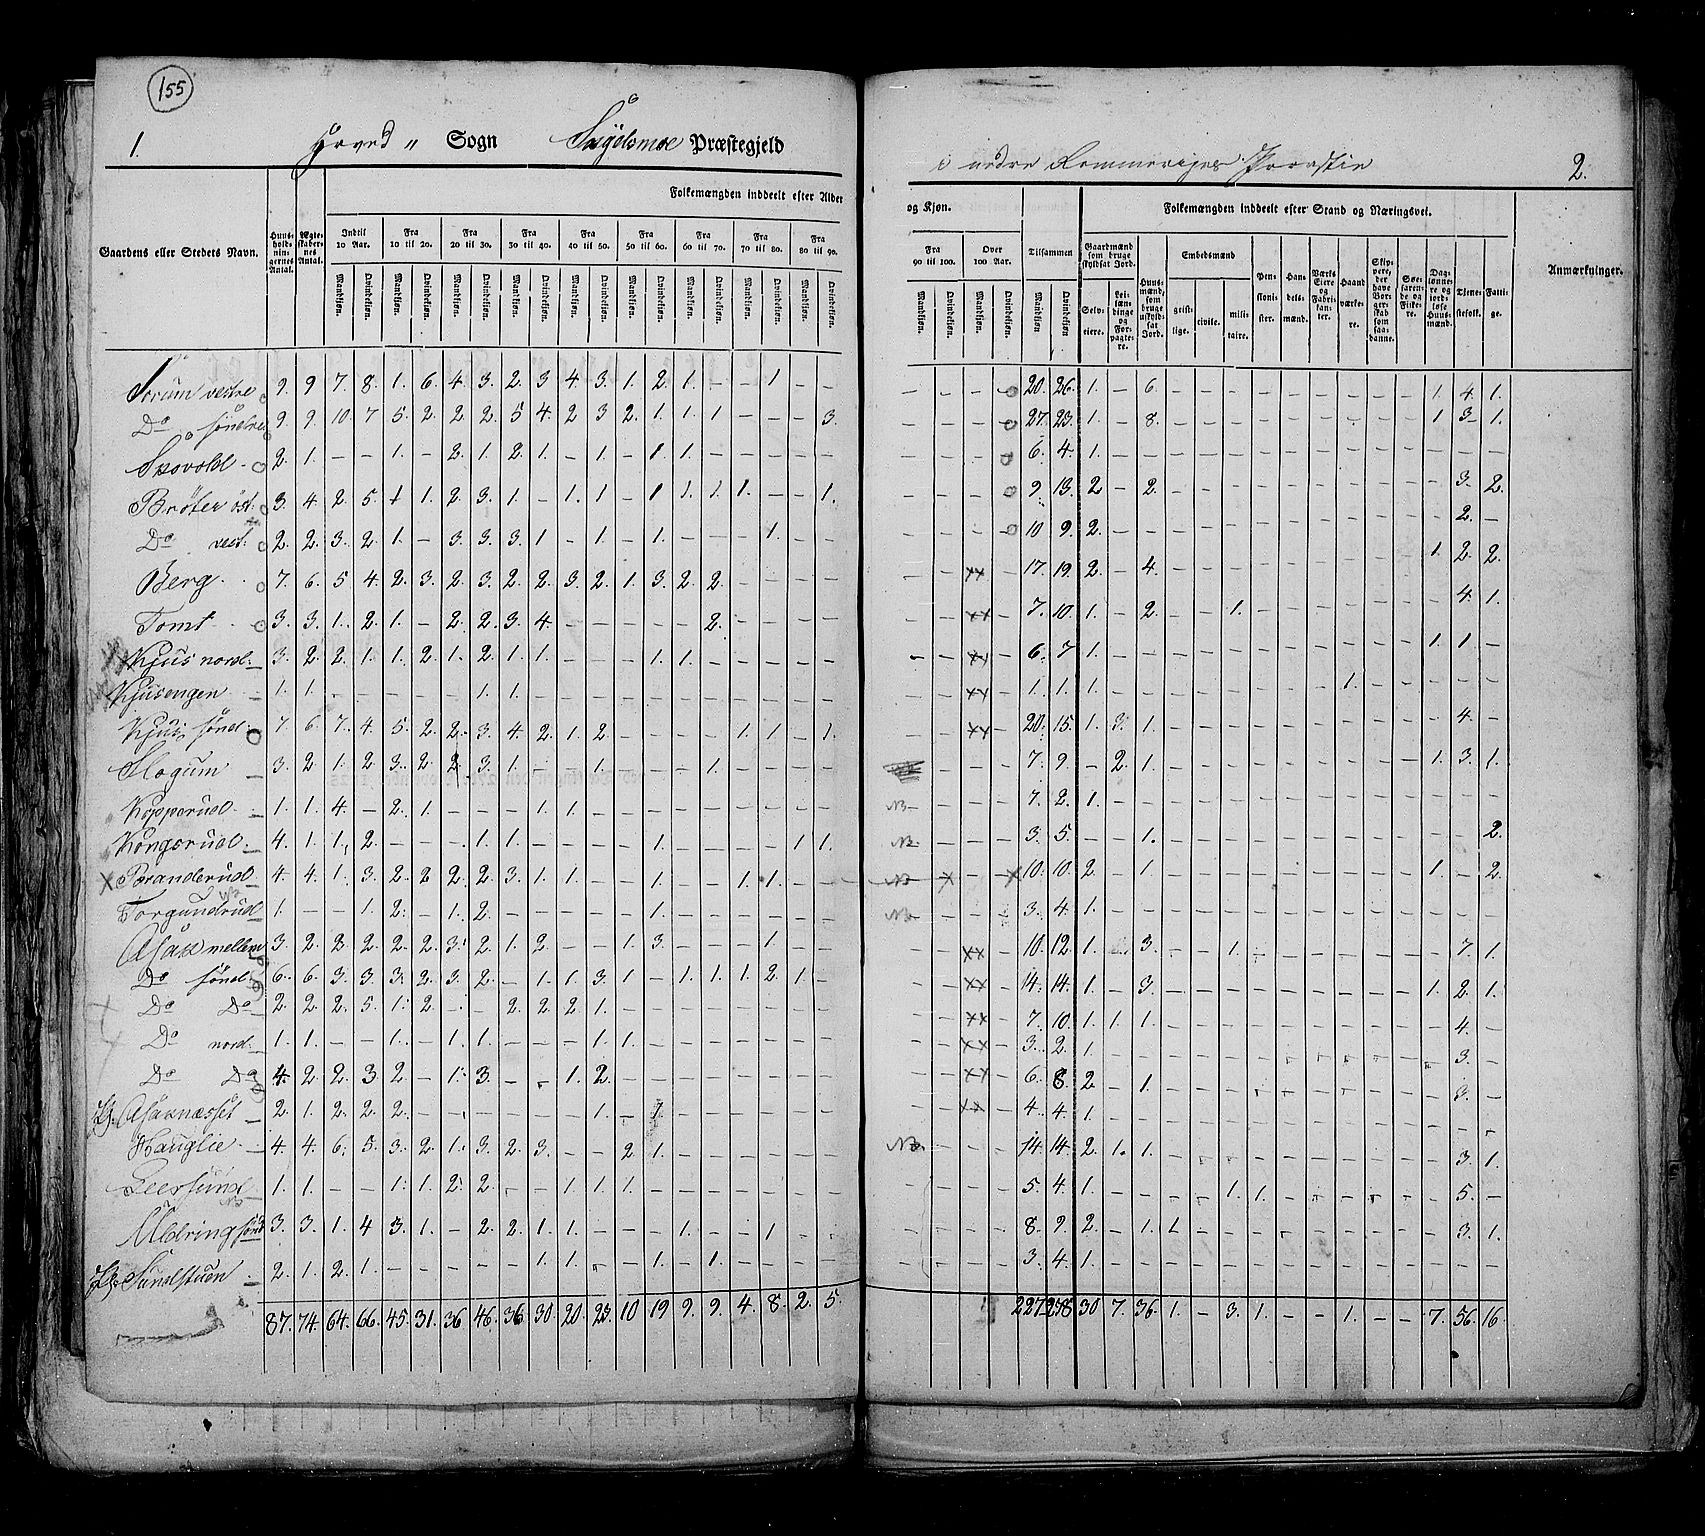 155
1. Hoved „ Sogn Præstegjeld
i nedre Rommeriges Provstie 2.
Gaardens eller Stedets Navn.
Huusholdningernes Antal.
Ægteskabernes Antal.
Folkemængden inddeelt efter Alder
og Kjøn.
Folkemængden inddeelt efter Stand og Næringsvei.
Anmærkninger.
Indtil 10 Aar. Fra 10 til 20. Fra 20 til 30. Fra 30 til 40. Fra 40 til 50. Fra 50 til 60. Fra 60 til 70. Fra 70 til 80. Fra 80 til 90.
Fra 90 til 100. Over 100 Aar. Tilsammen
Mandkjøn. Qvindekjøn.
Gaardmænd som bruge skyldsat Jord.
Selveiere. Leilændinge og Forpagtere.
Huusmænd, som bruge uskyldsat Jord.
Embedsmænd
geistlige. civile. militaire.
Pensionister.
Handelsmænd.
Værks Eiere og Fabrikanter.
Haandværkere.
Skippere, der have Borgerskab som saadanne.
Søefarende og Fiskere.
Daglønnere og jordløse Huusmænd.
Tjenestefolk.
Fattige.
Sorum vestre 9. 9 7. 8. 1. 6. 4. 3. 2. 3 4. 3. 1. 2. 1. – – 1 – – – – – – 20. 26. 1. – 6. – – – – – – – – – 1. 4. 1.
Do søndre 9. 9. 10. 7 5. 2. 2. 2. 5 4. 2 3 2. 1. 1. 1 – – – 3. – – – – 27. 23. 1. – 8. – – – – – – – – – 1 3. 1.
Skovold 2. 1. – – 1. – 2. 1. 2. 1. – 1. – 1. 1. – – – – – – – – – 6. 4. 1. – – – – – – – – – – – – – –
Brøter øst. 3. 4. 2. 5. 1 1. 2. 3. 1. – 1. 1. – 1 1. 1. 1. – – 1. – – – – 9. 13. 2. – 2. – – – – – – – – – – 3. 2.
Do vest. 2. 2. 3. 2. 1. – 3. 3. 3. 1 – 1. – 1. – – – 1. – – – – – – 10 9. 2. – – – – – – – – – – – – 2. –
Berg 7. 6. 5 4. 2. 3. 2. 3. 2. 2. 3. 2. 1. 3. 2. 2. – – – – – – xx 17. 19. 2. – 4. – – – – – – – – – 1. 2. 2.
Tomt 3. 3. 1. 2. 1. – 2. 2. 3. 4. – – – – – 2. – – – – – – xx 7. 10. 1. – 2. – – 1. – – – – – – – 4. 1.
Kjus nord. 3. 2. 2. 1. 1. 2. 1. 2. 1. 1. – – – 1. 1. – – – – – – – xx 6. 7 1. – – – – – – – – – – – 1. 1. –
Kjusengen 1. 1. – – – – – 1. 1. – – – – – – – – – – – – – xx 1. 1. 1. – – – – – – – – 1. – – – – –
Kjus sønd. 7. 6. 7. 4. 5. 2. 2. 3. 4. 2. 1. 2. – – – – 1. 1. – 1. – – xx 20. 15. 1. 3. 1. – – – – – – – – – – 4. –
Slogum 3. 2 1. 2. 3. 2. 2. 3. 1. – – 1. – – – 1. – – – – – – – 7. 9. – 2. 1. – – – – – – – – – 1. 3. 1.
Kopperud 1. 1. 4. – 2. 1. – – – 1. 1. – – – – – – – – – NB – – – 7. 2. 1. – – – – – – – – – – – – – –
Kongsrud 4. 1. 1. 2. – – – 1. 1. – – – – 1. – – – – 1 1. NB – – – 3. 5. – – 1. – – – – – – – – – – – 2.
Branderud 4. 4. 1. 3. 2. 2. 2. 2. 3. 1. 1. – – 1. – – 1. 1. – – NB x – x 10. 10. 2. – 1. – – – – – – – – – 1. – 2.
Torgundrud NB 1. – – 1. 2. – 1. 2. – – – – – 1. – – – – – – NB – – – 3. 4. 1. – – – – – – – – – – – – – –
Asak mellem 3. 2. 2. 2. 2. 2. 3. 2. 1. 2. – – 1. 3. – – – 1. – – – – xx 10. 12. 1. – 3. – – 1. – – – – – – – 7. 1.
Do sønd. 6. 6. 3. 3. 3. 2. 3. 2. – 1. 1. 3. 1. – 1. 1. 1. 2. 1. – – – xx 14. 14. 1. – 3. – – – – – – – – – 1. 2. 1.
Do Do 2. 2. 2. 5. 1. 2. – – 2. 2. 2. 1. – – – – – – – – – – xx 7. 10. 1. 1. 1. – – – – – – – – – – 4. –
Do nord. 1. 1. – – 1. – 1. 1. – – – 1. 1. – – – – – – – – – xx 3. 2. 1. – – – – – – – – – – – – 3. –
Do Do 4. 2. 2. 3. 2. – 1. 3. – – 1. 2. – – – – – – – – – – xx 6. 8. 2. – 1. – – – – – – – – – – 3. –
Asaknæsset 2. 1. 2. 2. 2. – – – – – – 1. – 1. – – – – – – – – xx 4. 4. 1. – – – – – – – – – – – – – –
Hauglie 4. 4. 6. 5. 3. 2. 1. 3. 2. 3. – – 2. 1. – – – – – – NB – – – 14. 14. 2. 1. 1. – – – – – – – – – – 3. 1.
Leersund 1. 1. – – 1. 1. 2. 2. – – 1. 1. 1. – – – – – – – – – – – 5. 4. 1. – – – – 1. 1. – – – – – – 5. –
Uldring sønd 3. 3. 1. 4. 3. 1. – 2. 2. 1. 1. – – – 1. – – 1 – – – – – – 8. 9. 2. – 1. 1. – – – – – – – – – 3. 1.
Sundstuen 2. 1. 2. 1. – – – – – 1. 1. – – 1. – 1. – – – – – – – – 3. 4. 1. – – – – – – – – – – – – – –
87. 74. 64. 66. 45. 31. 36 46. 36. 30. 20. 23. 10 19 9. 9. 4. 8. 2. 5. 227. 238. 30 7. 36. 1. – 3. 1. – – 1. – – 7. 56. 16.